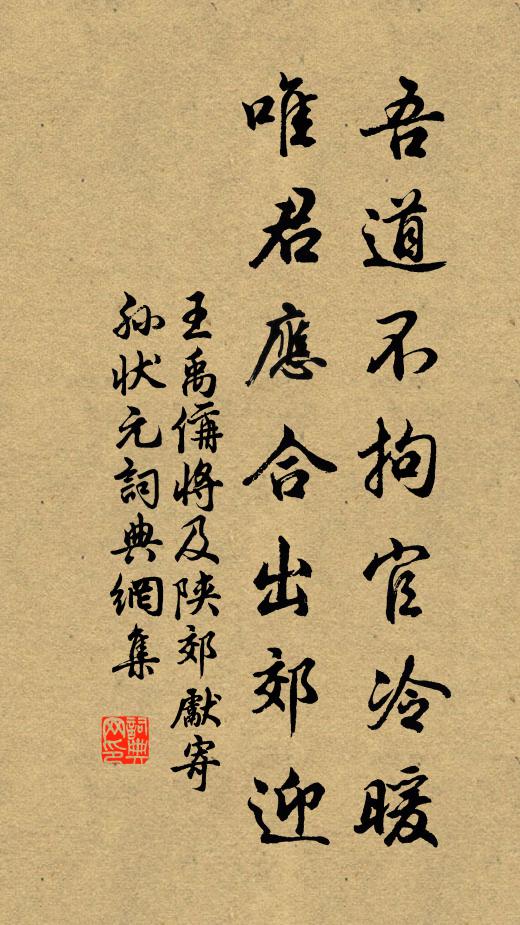 吾道不拘官冷暖
唯君應合出郊迎
王禹偁將及陝郊獻寄
孫狀元詞典網集
詞典
网印